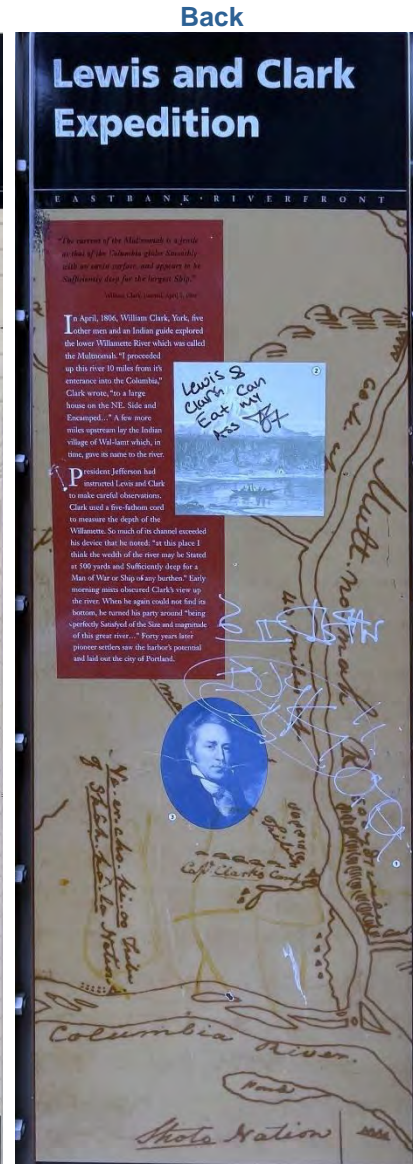 Back
Lewis and Clark
Expedition
EASTBANK · RIVERFRONT
"The current of the Multnomah is as jentle
as that of the Columbia glides Smoothly
with an eavin surface, and appears to be
Sufficiently deep for the largest Ship."
William Clark, journal, April 3, 1806
In April, 1806, William Clark, York, five
other men and an Indian guide explored
the lower Willamette River which was called
the Multnomah. "I proceeded
up this river 10 miles from it's
enterance into the Columbia,"
Clark wrote, "to a large
house on the NE. Side and
Encamped..." A few more
miles upstream lay the Indian
village of Wal-lamt which, in
time, gave its name to the river.
President Jefferson had
instructed Lewis and Clark
to make careful observations.
Clark used a five-fathom cord
to measure the depth of the
Willamette. So much of its channel exceeded
his device that he noted: "at this place I
think the wedth of the river may be Stated
at 500 yards and Sufficiently deep for a
Man of War or Ship of any burthen." Early
morning mists obscured Clark's view up
the river. When he again could not find its
bottom, he turned his party around "being
perfectly Satisfyed of the Size and magnitude
of this great river..." Forty years later
pioneer settlers saw the harbor's potential
and laid out the city of Portland.
2
Lewis &
Clark can
Eat my
Ass
Mult-no-mah River
3
1
Capt Clark's Camp
Nation
Columbia River.
Shoto Nation